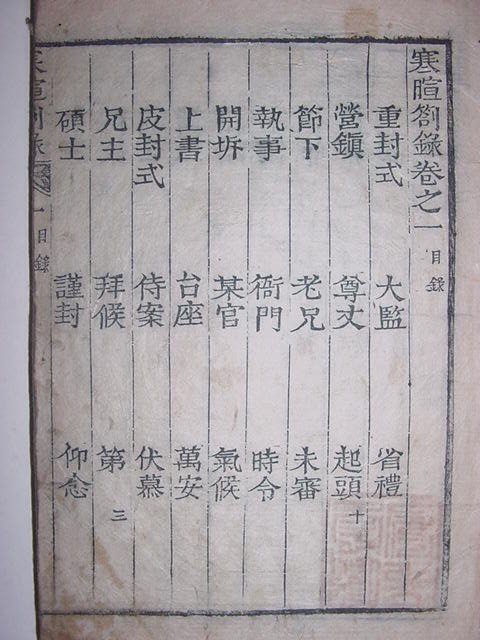 寒暄劄錄卷之一 目錄
重封式 大監 省禮
營鎭 尊丈 起頭 十
節下 老兄 未審
執事 衙門 時令
開坼 某官 氣候
上書 台座 萬安
皮封式 侍案 伏慕
兄主 拜候 第 三
碩士 謹封 仰念
寒暄劄錄 一 目錄